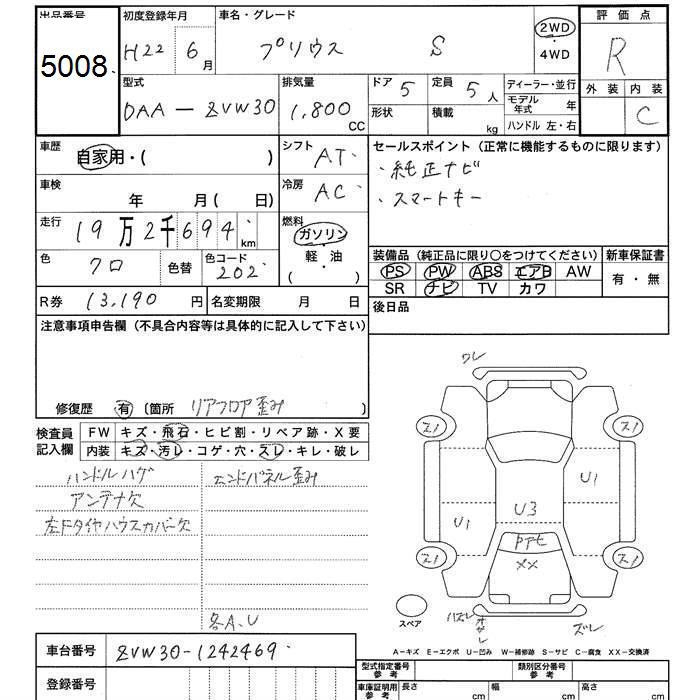 出品番号
5008
初度登録年月
H22 6月
車名・グレード
プリウス S
2WD
・
4WD
評価点
R
外装 内装
C
型式
DAA-ZVW30
排気量
1,800
CC
ドア 5
定員 5人
形状
積載
kg
ディーラー・並行
モデル年式 年
ハンドル 左・右
車歴
自家用・( )
シフト
AT
車検
年 月( 日)
冷房
AC
走行
19万2千694km
燃料
ガソリン
軽・油
( ・ )
色
クロ
色替
色コード
202
R券 13,190 円
名変期限 月 日
セールスポイント(正常に機能するものに限ります)
・純正ナビ
・スマートキー
装備品(純正品に限り〇をつけてください)
新車保証書
PS PW ABS エアB AW
SR ナビ TV カワ
有・無
後日品
注意事項申告欄(不具合内容等は具体的に記入して下さい)
修復歴 有 〔箇所 リアフロア歪み )
検査員
記入欄
FW キズ・飛石・ヒビ割・リペア跡・X要
内装 キズ・汚レ・コゲ・穴・スレ・キレ・破レ
ハンドルハゲ
エンドパネル歪み
アンテナ欠
左FタイヤハウスカバーX欠
各A、U
ワレ
U1
U1
U3
XX
ハズレ
ズレ
スペア
A-キズ E-エクボ U-凹み W-補修跡 S-サビ C-腐食 XX-交換済
車台番号
ZVW30-1242469
登録番号
型式指定番号
参考
類別区分番号
参考
車庫証明用
参考
長さ cm
幅 cm
高さ cm